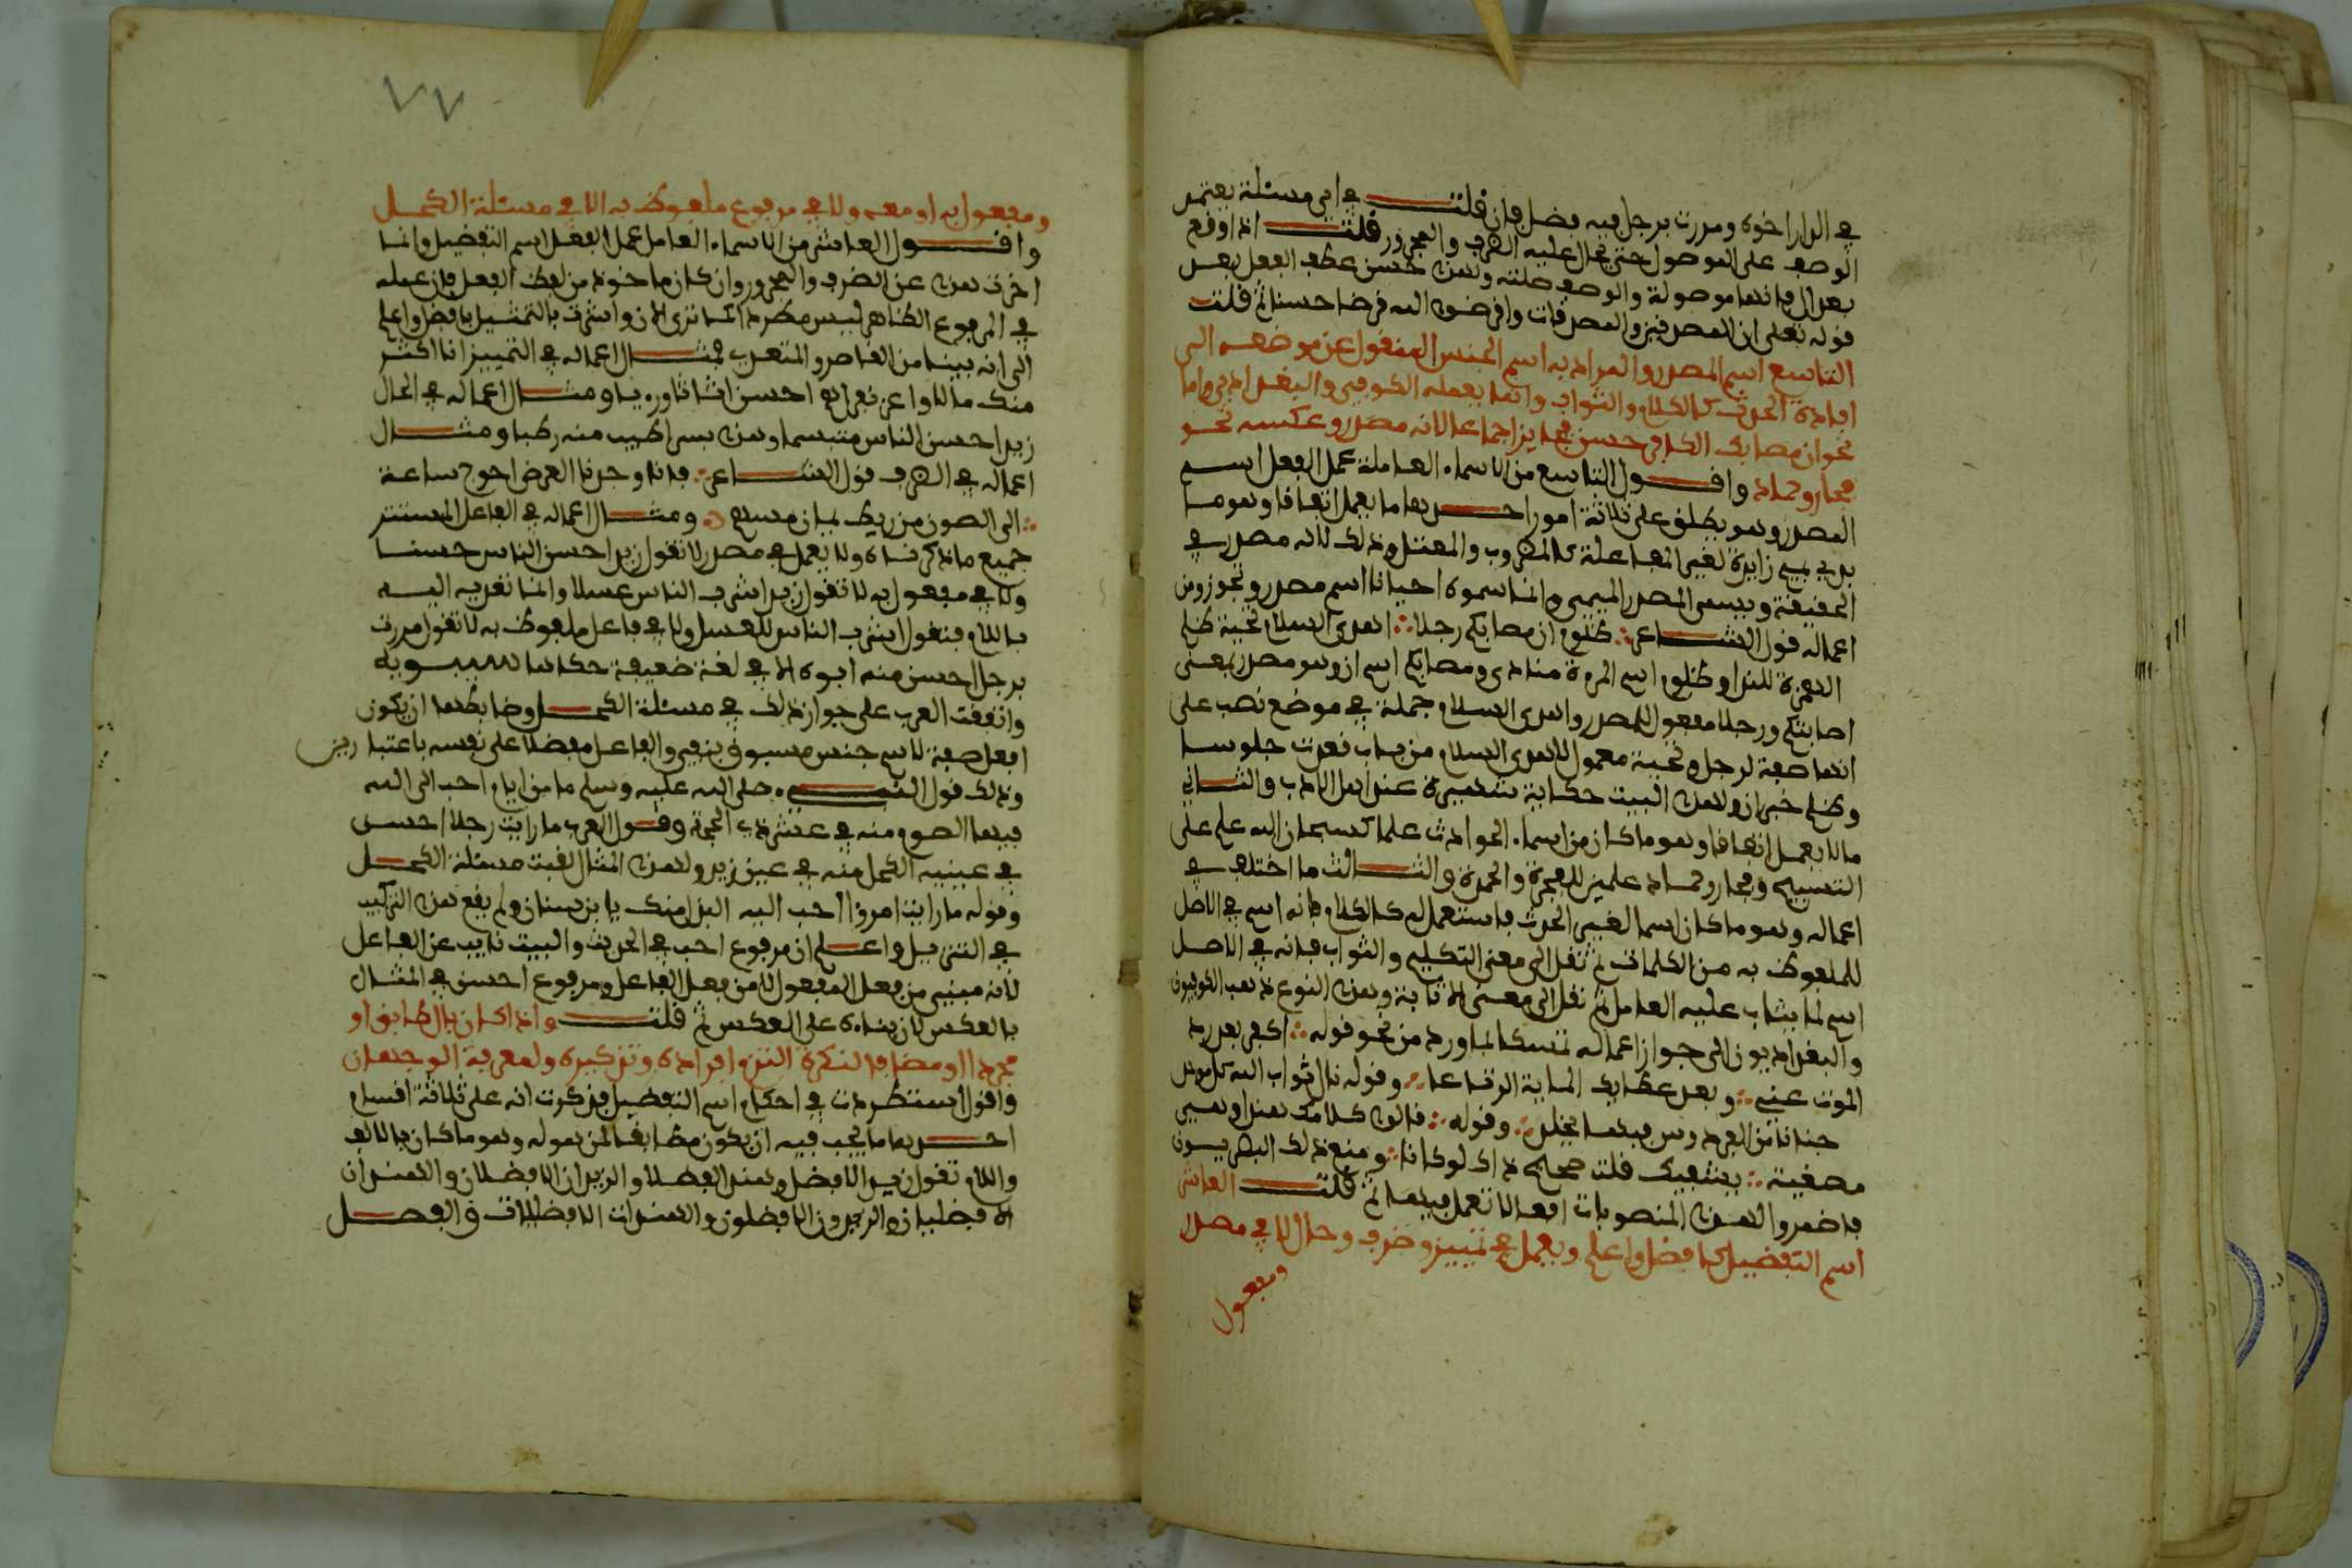 في الدار اخوه ومررت برجل فيه فضل فان قلت في اي مسئلة يعتمد
الوصف على الموصول حتى يحال عليه الظرف والمجرور قلت اذا وقع
بعد ال فانها موصولة والوصف صلته ولهذا حسن عطف الفعل بعد
قوله تعلى ان المصدقين والمصدقات واقرضوا الله قرضا حسنا ثم قلت
التاسع اسم المصدر والمراد به اسم الجنس المنقول عن موضعه الى
افادة الحدث كالكلام والثواب وانما يعمله الكوفي والبغدادي واما
نحو ان مصابك الكافر حسن فجايز اجماعا لانه مصدر وعكسه نحو
فجار وحماد واقول التاسع من الاسماء العاملة عمل الفعل اسم
المصدر وهو يطلق على ثلاثة امور احدها ما يعمل اتفاقا وهو ما
بدئ بميم زايدة لغير المفاعلة كالمضرب والمقتل وذلك لانه مصدر في
الحقيقة ويسمى المصدر الميمي وانما سموه احيانا اسم مصدر تجوزا ومن
اعماله قول الشاعر ∴ اظلوم ان مصابكم رجلا ∴ اهدى السلام تحية ظلم
الهمزة للندا وظلوم اسم امرءة منادى ومصابكم اسم ان وهو مصدر بمعنى
اصابتكم ورجلا مفعول للمصدر واهدى السلام جملة في موضع نصب على
انها صفة لرجل وتحية معمول لاهدى السلام من باب قعدت جلوسا
وظلم خبر ان ولهذا البيت حكاية شهيرة عند اهل الادب والثاني
ما لا يعمل اتفاقا وهو ما كان من اسماء الحوادث علما كسبحان الله علم على
التسبيح وفجار وحماد علمين للفجرة والحمدة والثالث ما اختلف في
اعماله وهو ما كان اسما لغير الحدث فاستعمل له كالكلام فانه اسم في الاصل
للملفوظ به من الكلمات ثم نقل الى معنى التكليم والثواب فانه في الاصل
اسم لما يثاب عليه العامل ثم نقل الى معنى الاثابة وهذا النوع ذهب الكوفيون
والبغداديون الى جواز اعماله تمسكا بما ورد من نحو قوله ∴ اكفرا بعد رد
الموت عني ∴ وبعد عطايك الماية الرتاعا ∴ وقوله فان ثواب الله كل موحد
جنان من الفردوس فيها يخلد ∴ وقوله ∴ قالوا كلامك هندا وهي
مصغية ∴ يشفيك قلت صحيح ذاك لو كانا ∴ ومنع ذلك البصريون
فاضمروا لهذه المنصوبات افعالا تعمل فيها ثم قلت العاشر
اسم التفضيل كافضل واعلم ويعمل في تمييز وظرف وحال لا في مصدر
ومفعول
٧٧
ومفعول به او معه ولا في مرفوع ملفوظ به الا في مسئلة الكحل
واقول العاشر من الاسماء العاملة عمل الفعل اسم التفضيل وانما
اخرت هذا عن الظرف والمجرور وان كان ماخوذا من لفظ الفعل فان عمله
في المرفوع الظاهر ليس مطردا كما ترى الان واشرت بالتمثيل بافضل واعلم
الى انه يبنى من القاصر والمتعدي فمثال اعماله في التمييز انا اكثر
منك مالا واعز نفرا هم احسن اثاثا وريا ومثال اعماله في الحال
زيد احسن الناس متبسما وهذا بسرا اطيب منه رطبا ومثال
اعماله في الظرف قول الشاعر ∴ فانا وجدنا العرض احوج ساعة
∴ الى الصون من ريط يمان مسهم ∴ ومثال اعماله في الفاعل المستتر
جميع ما ذكرناه ولا يعمل في مصدر لا تقول زيد احسن الناس حسنا
ولا في مفعول به لا تقول زيد اشرب الناس عسلا وانما تعديه اليه
باللام فتقول اشرب الناس للعسل ولا في فاعل ملفوظ به لا تقول مررت
برجل احسن منه ابوه الا في لغة ضعيفة حكاها سيبويه
واتفقت العرب على جواز ذلك في مسئلة الكحل وضابطها ان يكون
افعل صفة لاسم جنس مسبوق بنفي والفاعل مفضلا على نفسه باعتبارين
وذلك قول النبي صلى الله عليه وسلم ما من ايام احب الى الله
فيها الصوم منه في عشر ذي الحجة وقول العرب ما رايت رجلا احسن
في عينيه الكحل منه في عين زيد وبهذا المثال لقبت مسئلة الكحل
وقوله ما رايت امرؤا احب اليه البذل منك يا بن سنان ولم يقع هذا التركيب
في التنزيل واعلم ان مرفوع احب في الحديث والبيت نايب عن الفاعل
لانه مبني من فعل المفعول لا من فعل الفاعل ومرفوع احسن في المثال
بالعكس لان بناءه على العكس ثم قلت واذا كان بال طابق او
مجردا او مضافا لنكرة التزم افراده وتذكيره ولمعرفة الوجهان
واقول استطردت في احكام اسم التفضيل فذكرت انه على ثلاثة اقسام
احدها ما يجب فيه ان يكون مطابقا لمن هو له وهو ما كان بالالف
واللام تقول زيد الافضل وهند الفضلا والزيدان الافضلان والهندان
الفضليان والزيدون الافضلون والهندات الافضلات والفصل